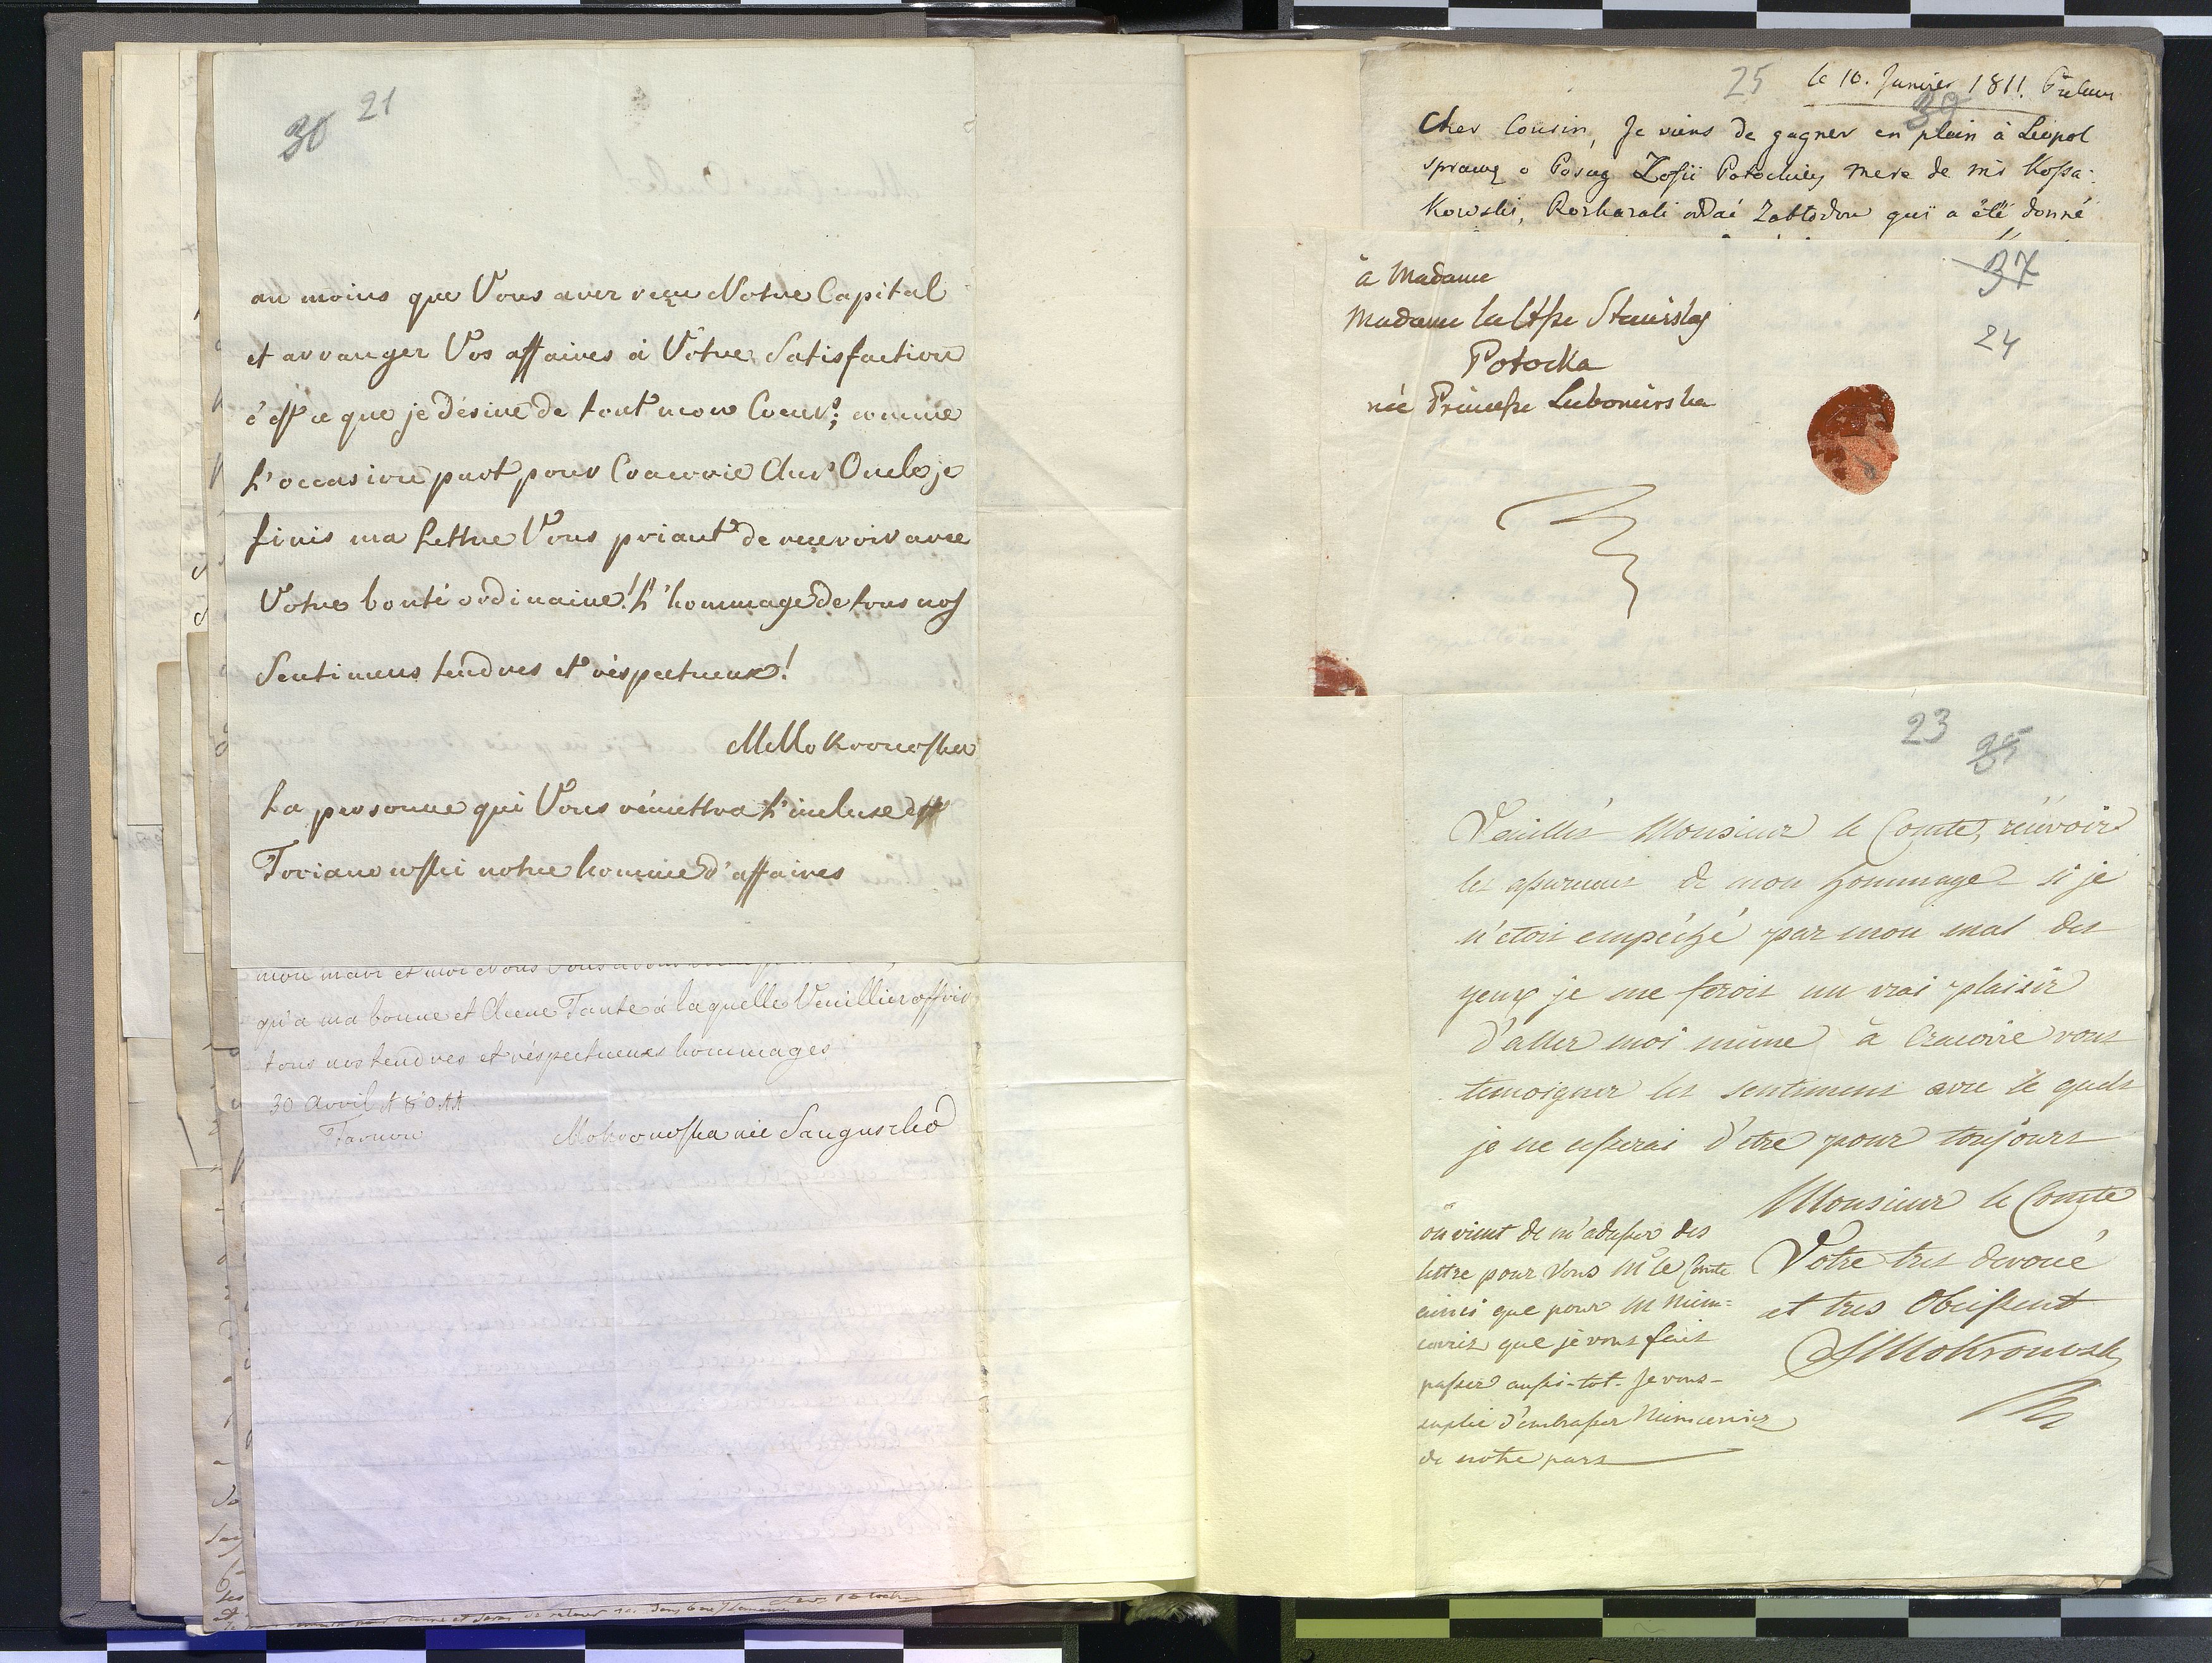 30 21
au moins que Vous avez reçu Votre Capital
et arranger Vos affaires à Votre Satisfaction
c'est ce que je désire de tout mon Coeur; comme
L'occasion part pour Cracovie Cher Oncle je
finis ma Lettre Vous priant de recevoir avec
Votre bonté ordinaire! L'hommage de tous nos
Sentimens tendres et réspectueux!
MMokronoska
La personne qui Vous rémettra L'incluse est
Torianowski notre homme d'affaires
mon mari et moi Nous Vous
qu'a ma bonne et Chere Tante à laquelle Veuilliez offrir
tous nos tendres et réspectueux hommages
30 Avril 1811
Tarnow Mokronoska née Sanguszko
25 le 10. Janvier 1811.
39
Cher Cousin, Je viens de gagner en plein à Léopol
sprawę o Posag Zofii Potockiey mere de mr Kossa-
kowski, qui a été donné
à Madame
Madame la Ctsse Stanislas
Potocka
née Princesse Lubomirska
37
24
23 35
Veuillés Monsieur le Comte, reçévoir
les assurences de mon hommage si je
n'etois empéché par mon mal des
yeux je me ferois un vrai plaisir
d'aller moi même à Cracovie vous
temoigner les sentimens avec le quels
je ne cesserai d'etre pour toujours
Monsieur le Comte
Votre tres devoué
et tres Obeissent
SMokronoski
on vient de m'adresser des
lettre pour Vous Mr le Comte
ainsi que pour M Niem=
cewicz que je vous fais
passer aussi-tot. Je vous-
suplie d'embrasser Niemcewicz
de notre part